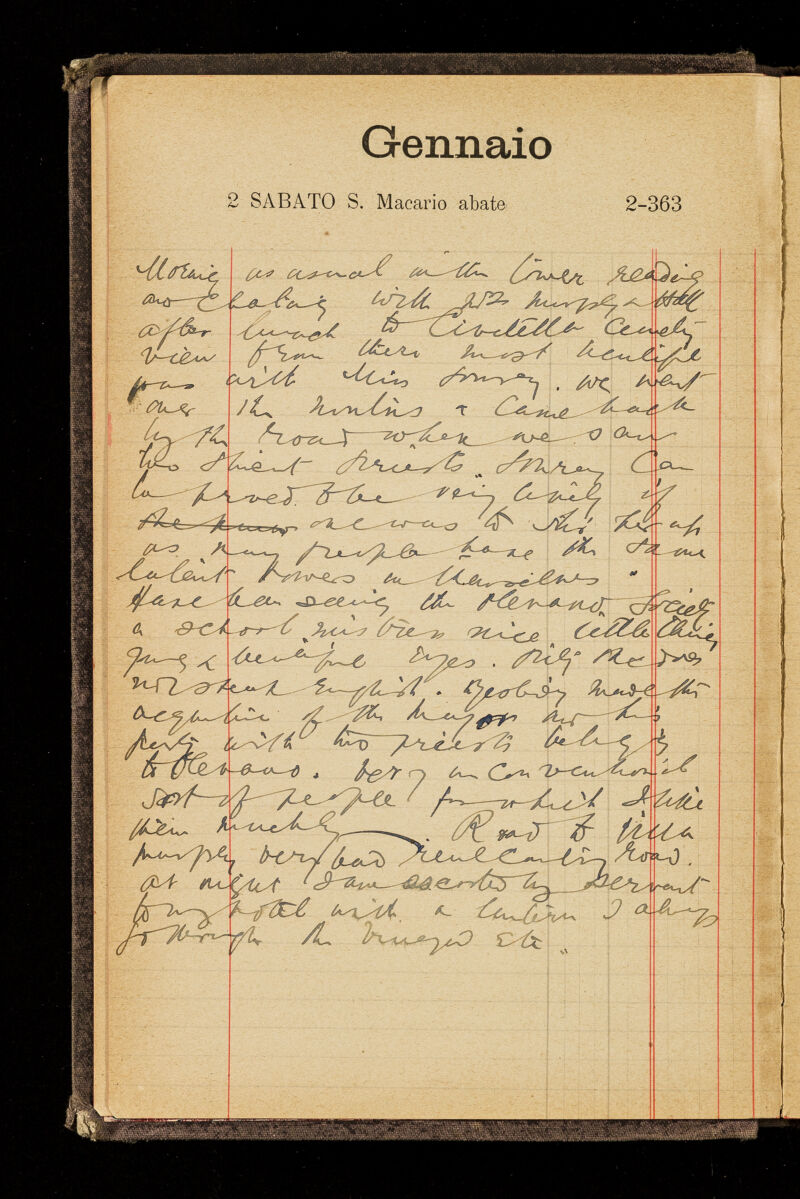 Gennaio
2 SABATO S. Macario abate 2-363
Morning as usual in the tower reading
and chating with Mrs Murphy &
after lunch to Civitella
view from there most beautiful
was with Miss . we went
over the & came back
by the road when we saw
two priests. can
be proved to be very lively if
she knew one was to stir her up
as many people have the same
latent powers in themselves.
Have been seeing the Olevano Society
a school mistress nice little thing
& beautiful eyes. Pity she does
not speak English. Yesterday made the
of the mayor and his
party with two priests belong
to Olevano. very unconventional
sort of people for which I like
them much. Road to Villa
Murphy very bad road.
at night I am escorted by servant
to my hotel with a lantern I always
go through the vineyard etc.